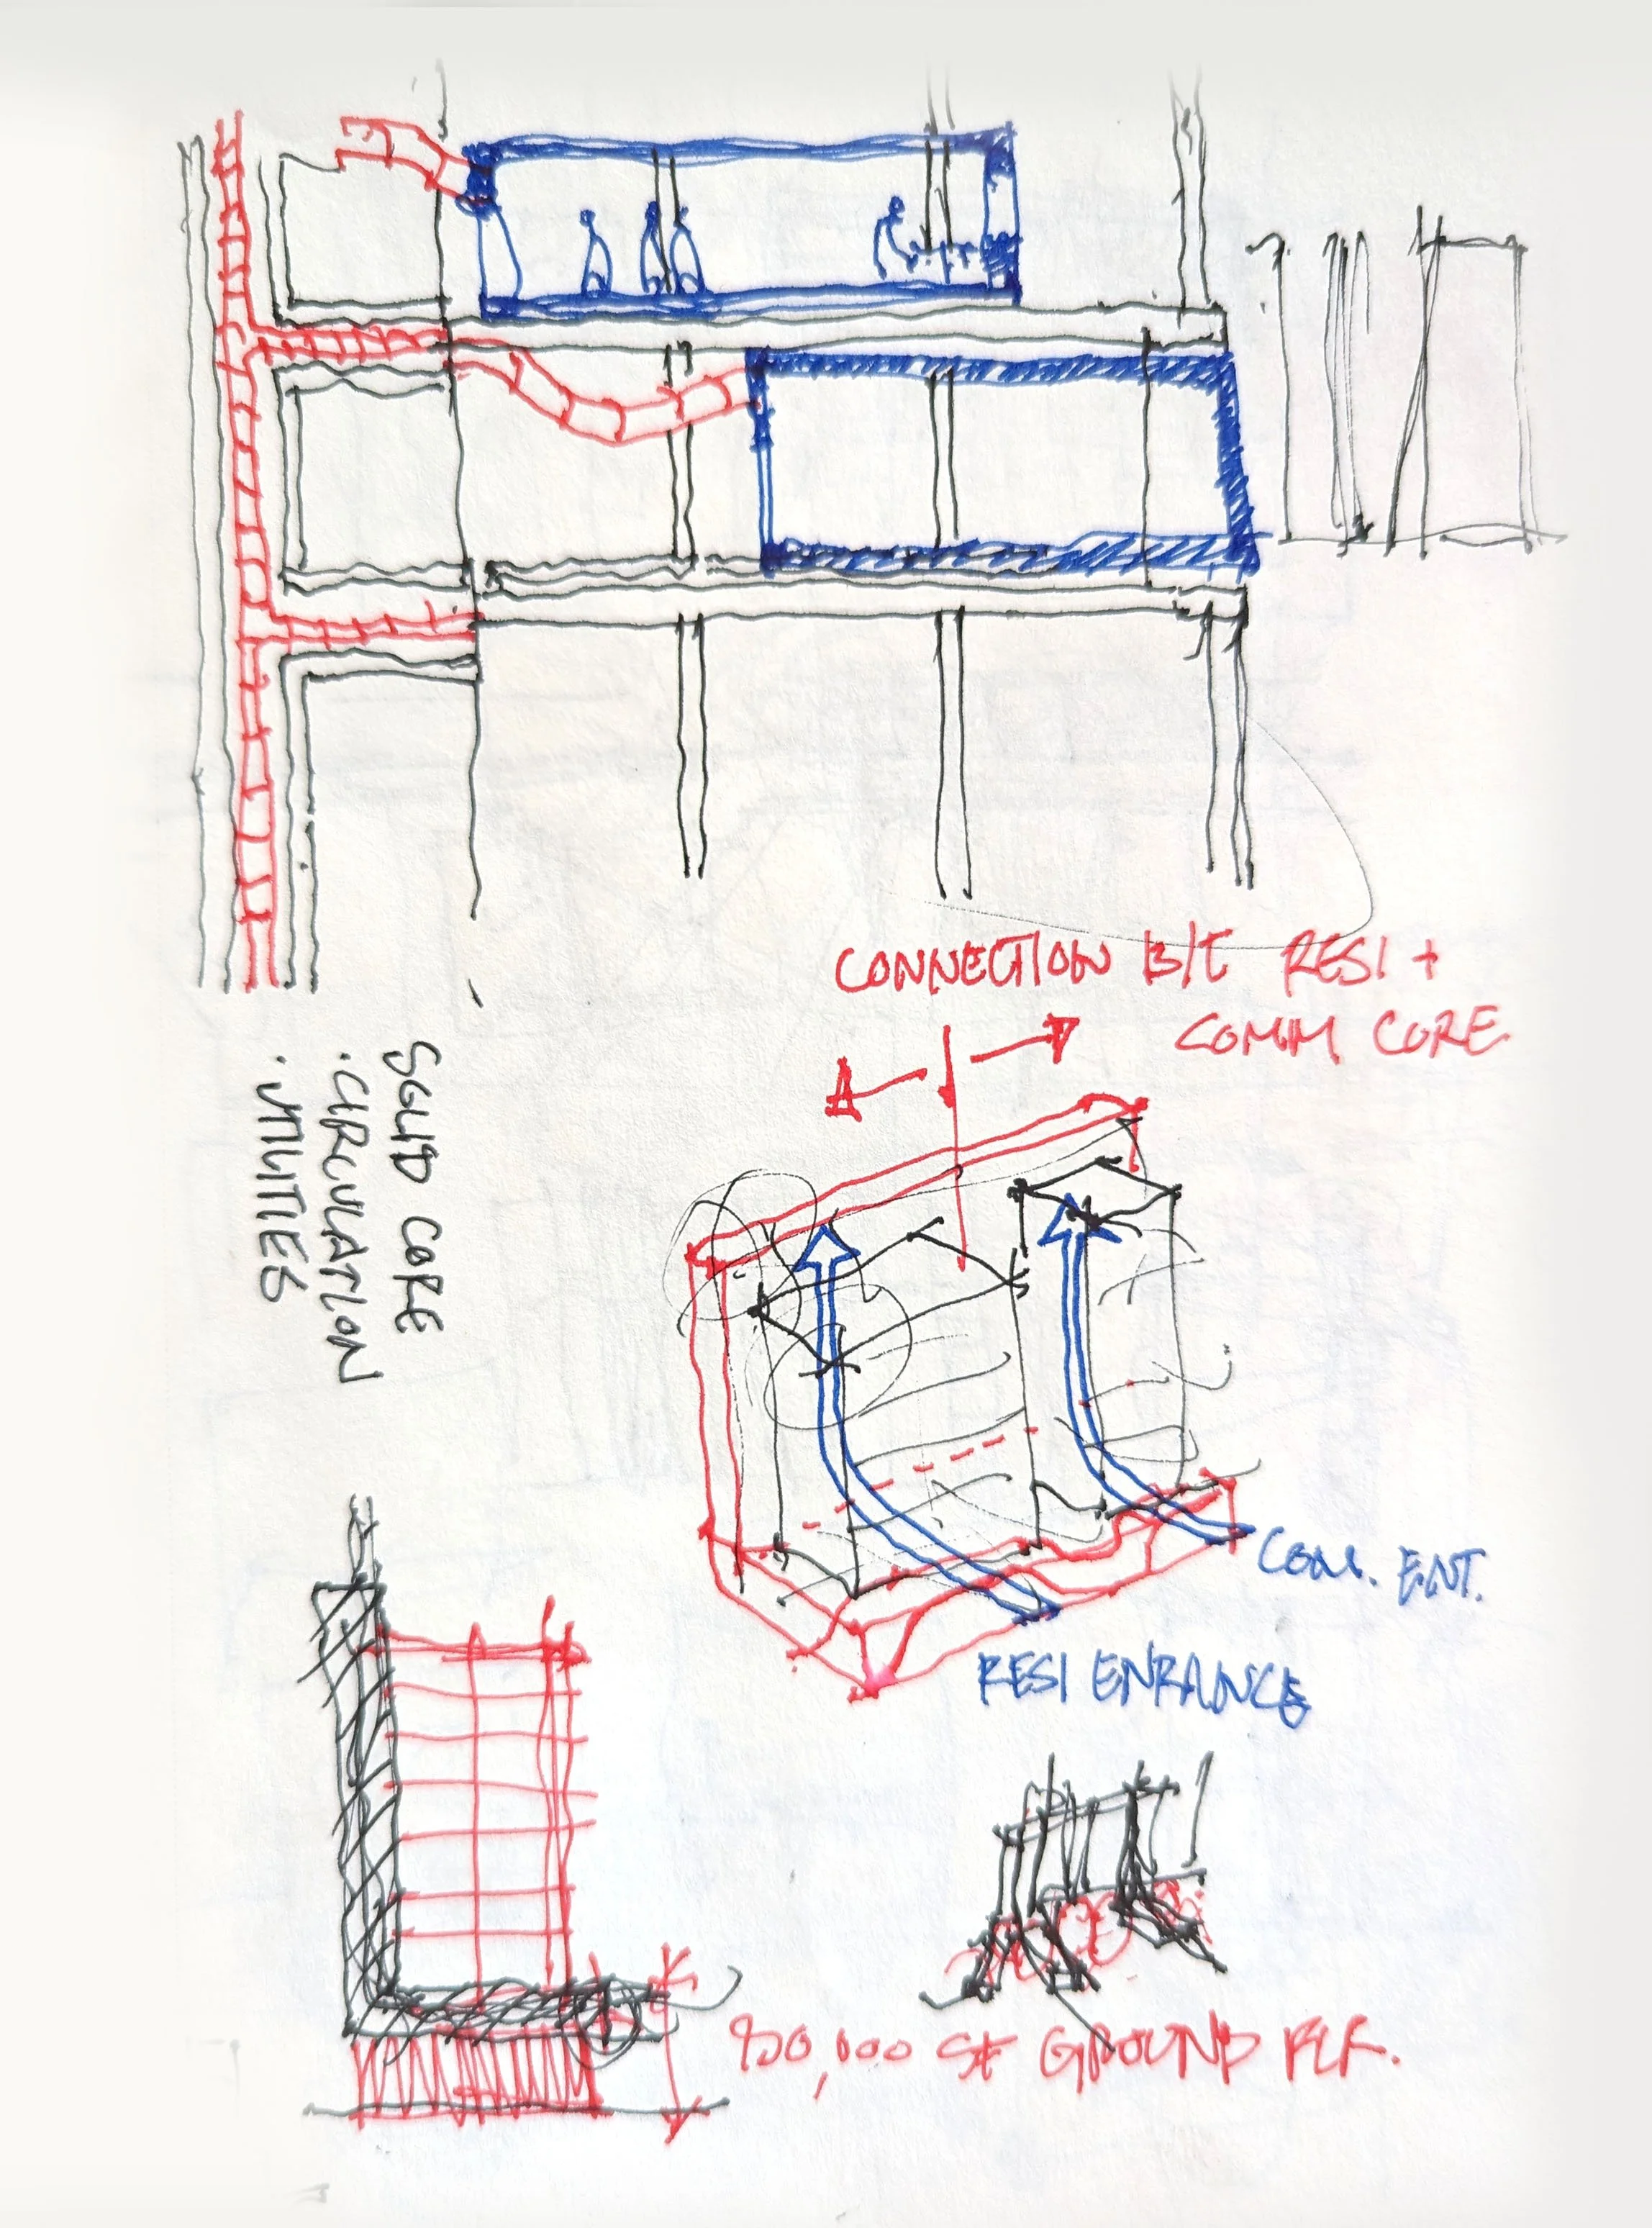 CONNECTION B/T RESI +
COMM CORE
SOLID CORE
· CIRCULATION
· UTILITIES
COM. ENT.
RESI ENRANCE
SF GROUND FLR.